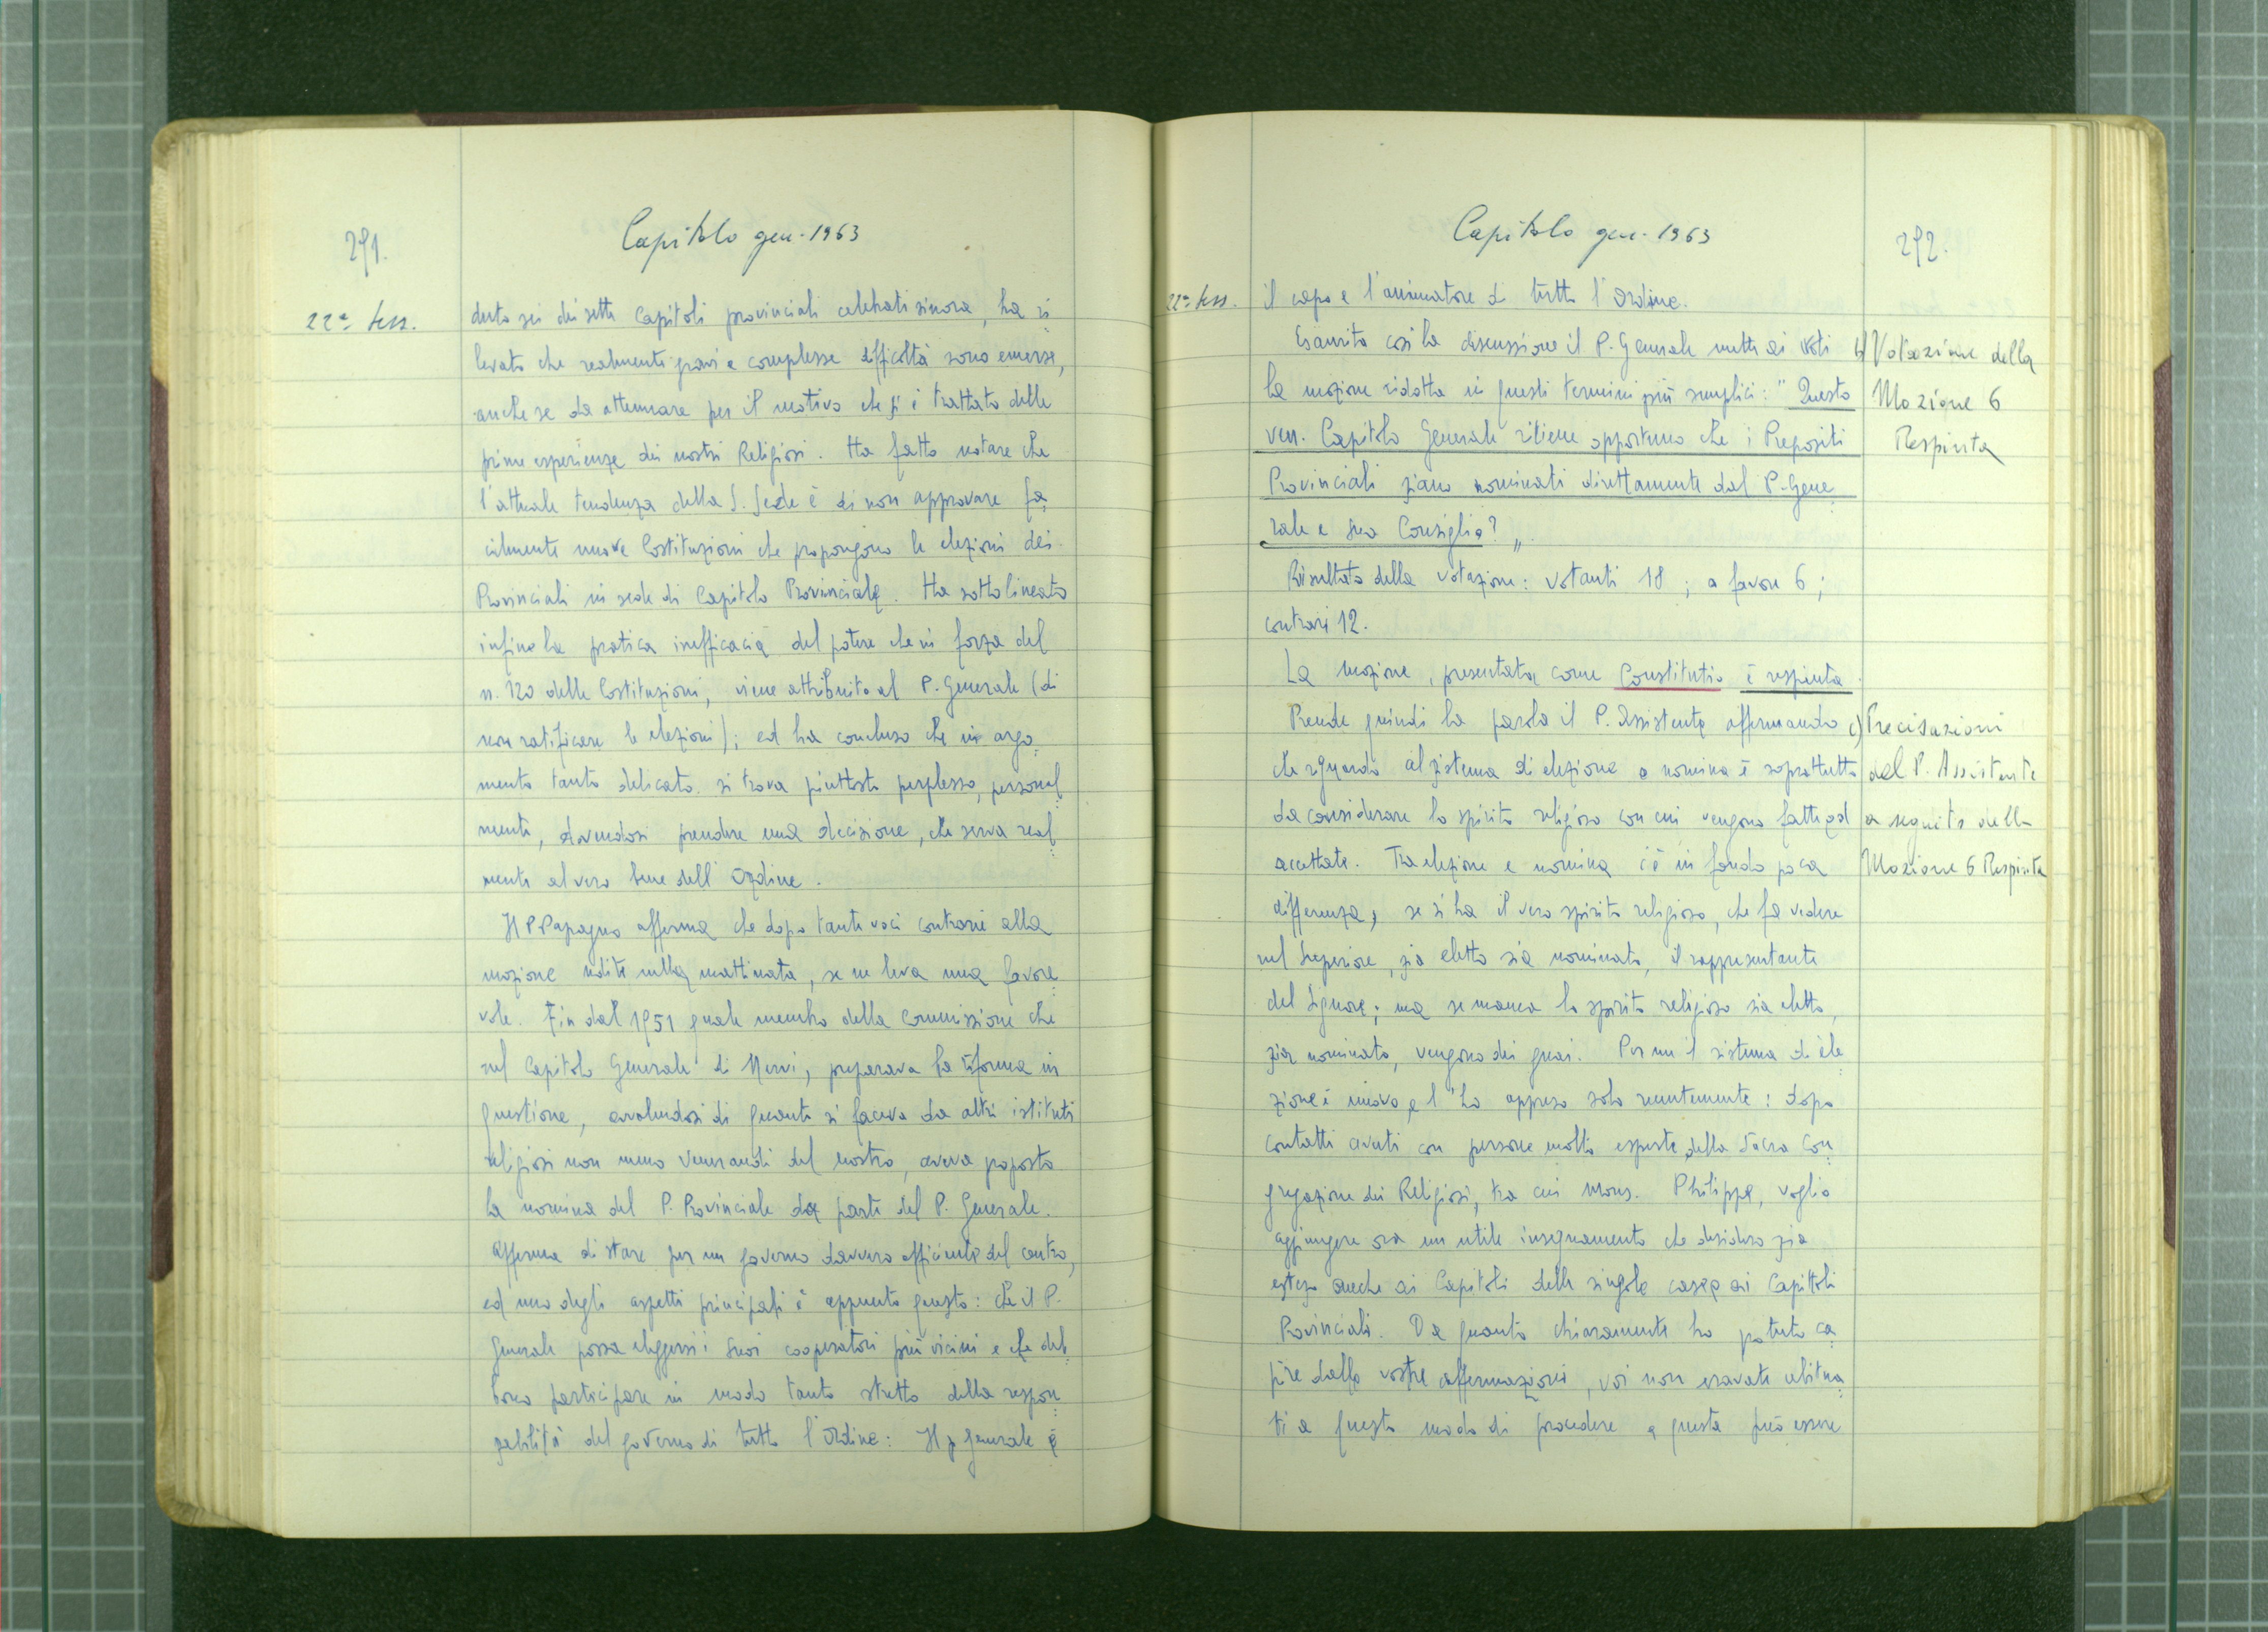 291.
Capitolo gen. 1963
22ª Sess.
duto sei dei sette Capitoli provinciali celebrati sinora, ha ri
levato che realmente gravi e complesse difficoltà sono emerse,
anche se da attenuare per il motivo che si è trattato delle
prime esperienze dei nostri Religiosi. Ha fatto notare che
l'attuale tendenza della S. Sede è di non approvare fa
cilmente nuove Costituzioni che propongono le elezioni dei
Provinciali in sede di Capitolo Provinciale. Ha sottolineato
infine la pratica inefficacia del potere che in forza del
n. 120 delle Costituzioni, viene attribuito al P. Generale (di
non ratificare le elezioni); ed ha concluso che in argo
mento tanto delicato si trova piuttosto perplesso, personal
mente, dovendosi prendere una decisione, che serva real
mente al vero bene dell'Ordine.
Il P. Papagno afferma che dopo tante voci contrarie alla
mozione udite nella mattinata, se ne leva una favore
vole. Fin dal 1951 quale membro della Commissione che
nel Capitolo Generale di Nervi, preparava la riforma in
questione, avvalendosi di quanto si faceva da altri istituti
religiosi non meno venerandi del nostro, aveva proposto
la nomina del P. Provinciale da parte del P. Generale.
Afferma di stare per un governo davvero efficiente del centro,
ed uno degli aspetti principali è appunto questo: che il P.
Generale possa eleggersi i suoi cooperatori più vicini e che deb
bono participare in modo tanto stretto della respon
sabilità del governo di tutto l'Ordine: Il P. Generale è
Capitolo gen. 1963
292.
22ª Sess.
il capo e l'animatore di tutto l'Ordine.
Esaurita così la discussione il P. Generale mette ai voti
la mozione ridotta in questi termini più semplici: "Questo
ven. Capitolo Generale ritiene opportuno che i Prepositi
Provinciali siano nominati direttamente dal P. Gene
rale e suo Consiglio?"
Risultato della votazione: votanti 18; a favore 6;
contrari 12.
La mozione, presentata come Constitutio è respinta.
Prende quindi la parola il P. Assistente affermando
che riguardo al sistema di elezione o nomina è soprattutto
da considerare lo spirito religioso con cui vengono fatte ed
accettate. Tra elezione e nomina c'è in fondo poca
differenza, se si ha il vero spirito religioso, che fa vedere
nel Superiore, sia eletto sia nominato, il rappresentante
del Signore; ma se manca lo spirito religioso sia eletto,
sia nominato, vengono dei guai. Per me il sistema di ele
zione è nuovo, e l'ho appreso solo recentemente: dopo
contatti avuti con persone molto esperte della Sacra Con
gregazione dei Religiosi, tra cui Mons. Philippe, voglio
aggiungere ora un utile insegnamento che desidero sia
esteso anche ai Capitoli delle singole case e ai Capitoli
Provinciali. Da quanto chiaramente ho potuto ca
pire dalle vostre affermazioni, voi non eravate abitua
ti a questo modo di procedere e questa può essere
b) Votazione della
Mozione 6
Respinta
c) Precisazioni
del P. Assistente
a seguito della
Mozione 6 Respinta